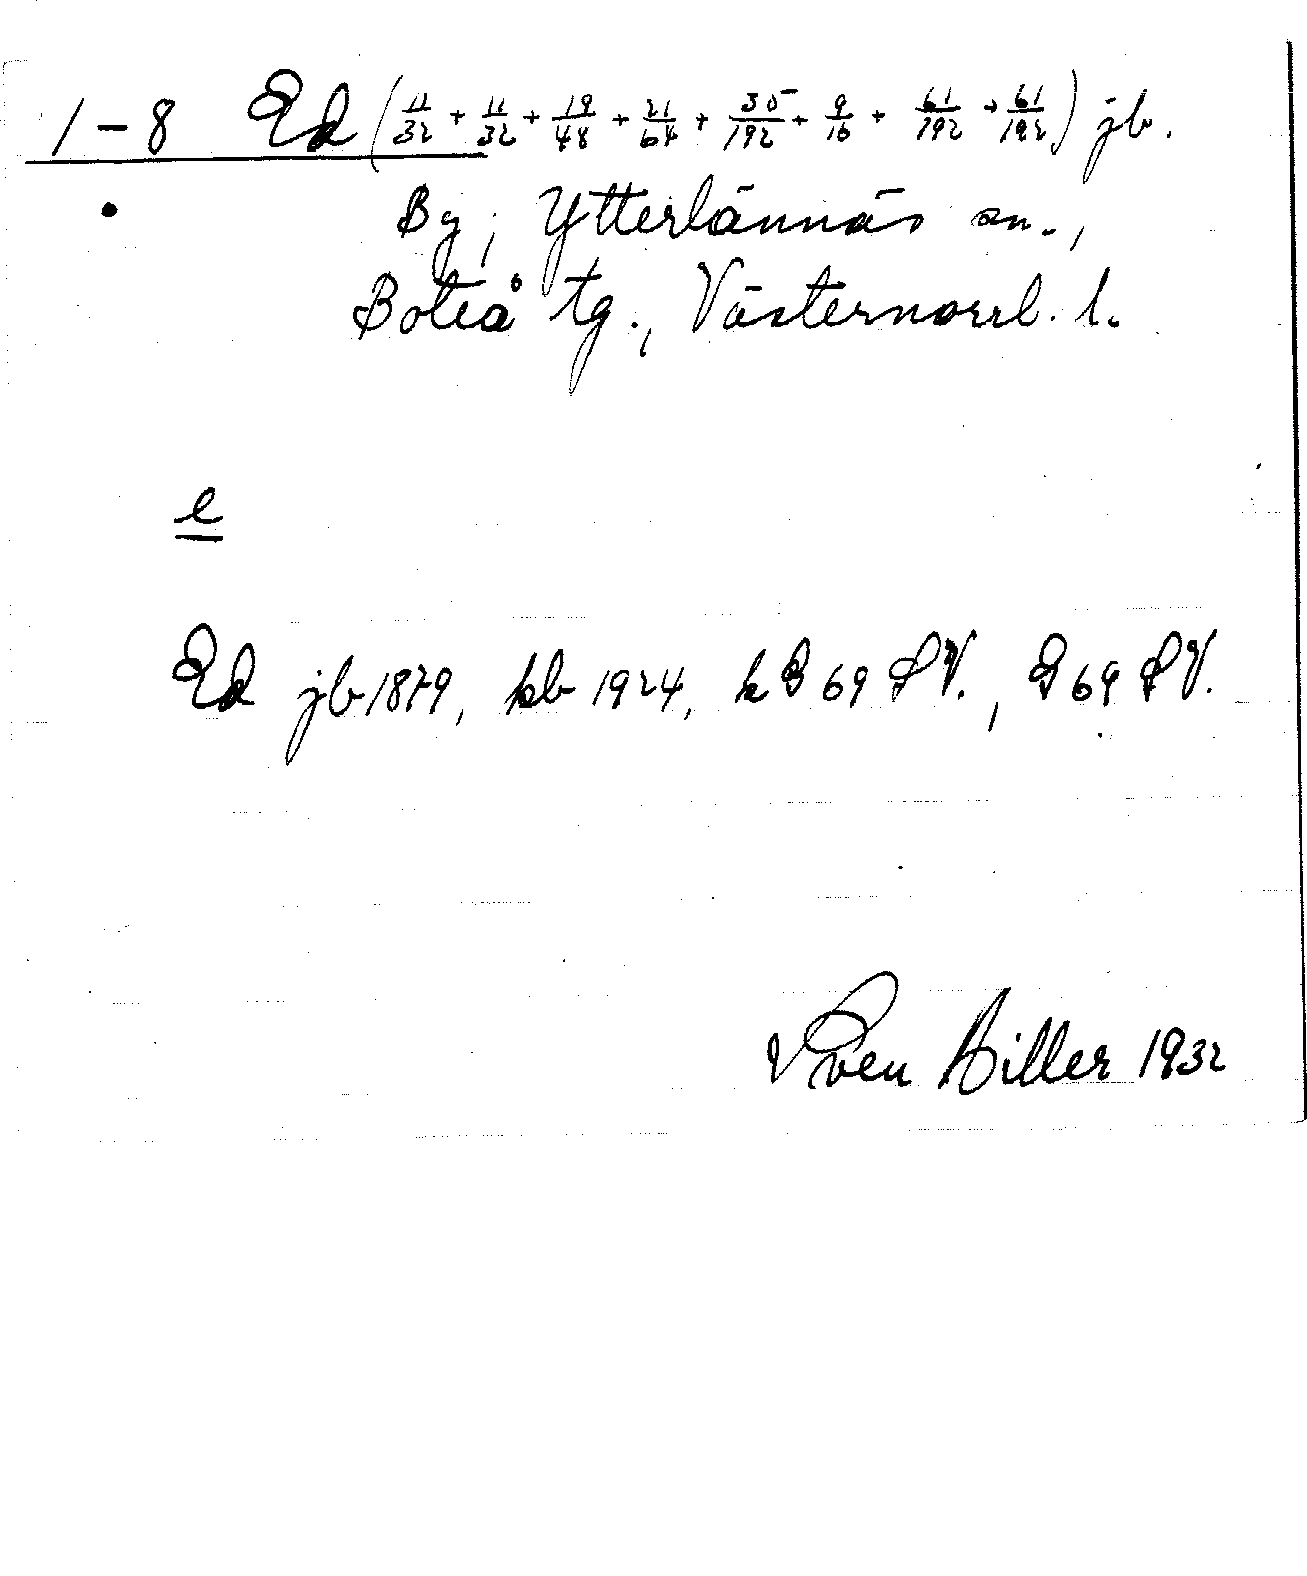 1-8 Ed (11/32 + 11/32 + 19/48 + 21/64 + 35/192 + 9/16 + 61/192 + 61/192) jb.
• By, Ytterlännäs sn.,
Boteå tg., Västernorrl. l.
e
Ed jb 1879, kb 1924, k B 69 SV., G 69 SV.
Sven Hiller 1932